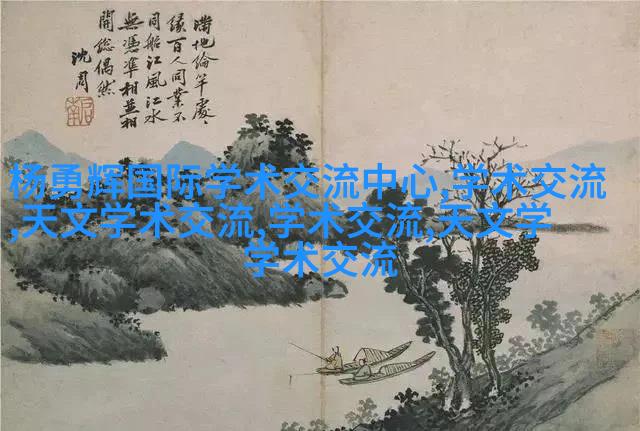 满地纶竿处处
缘百人同业不
同船江风江水
无凭准相并相
開怱偶然
沈周
杨勇辉国际学术交流中心,学术交流
,天文学术交流,学术交流,天文学
学术交流